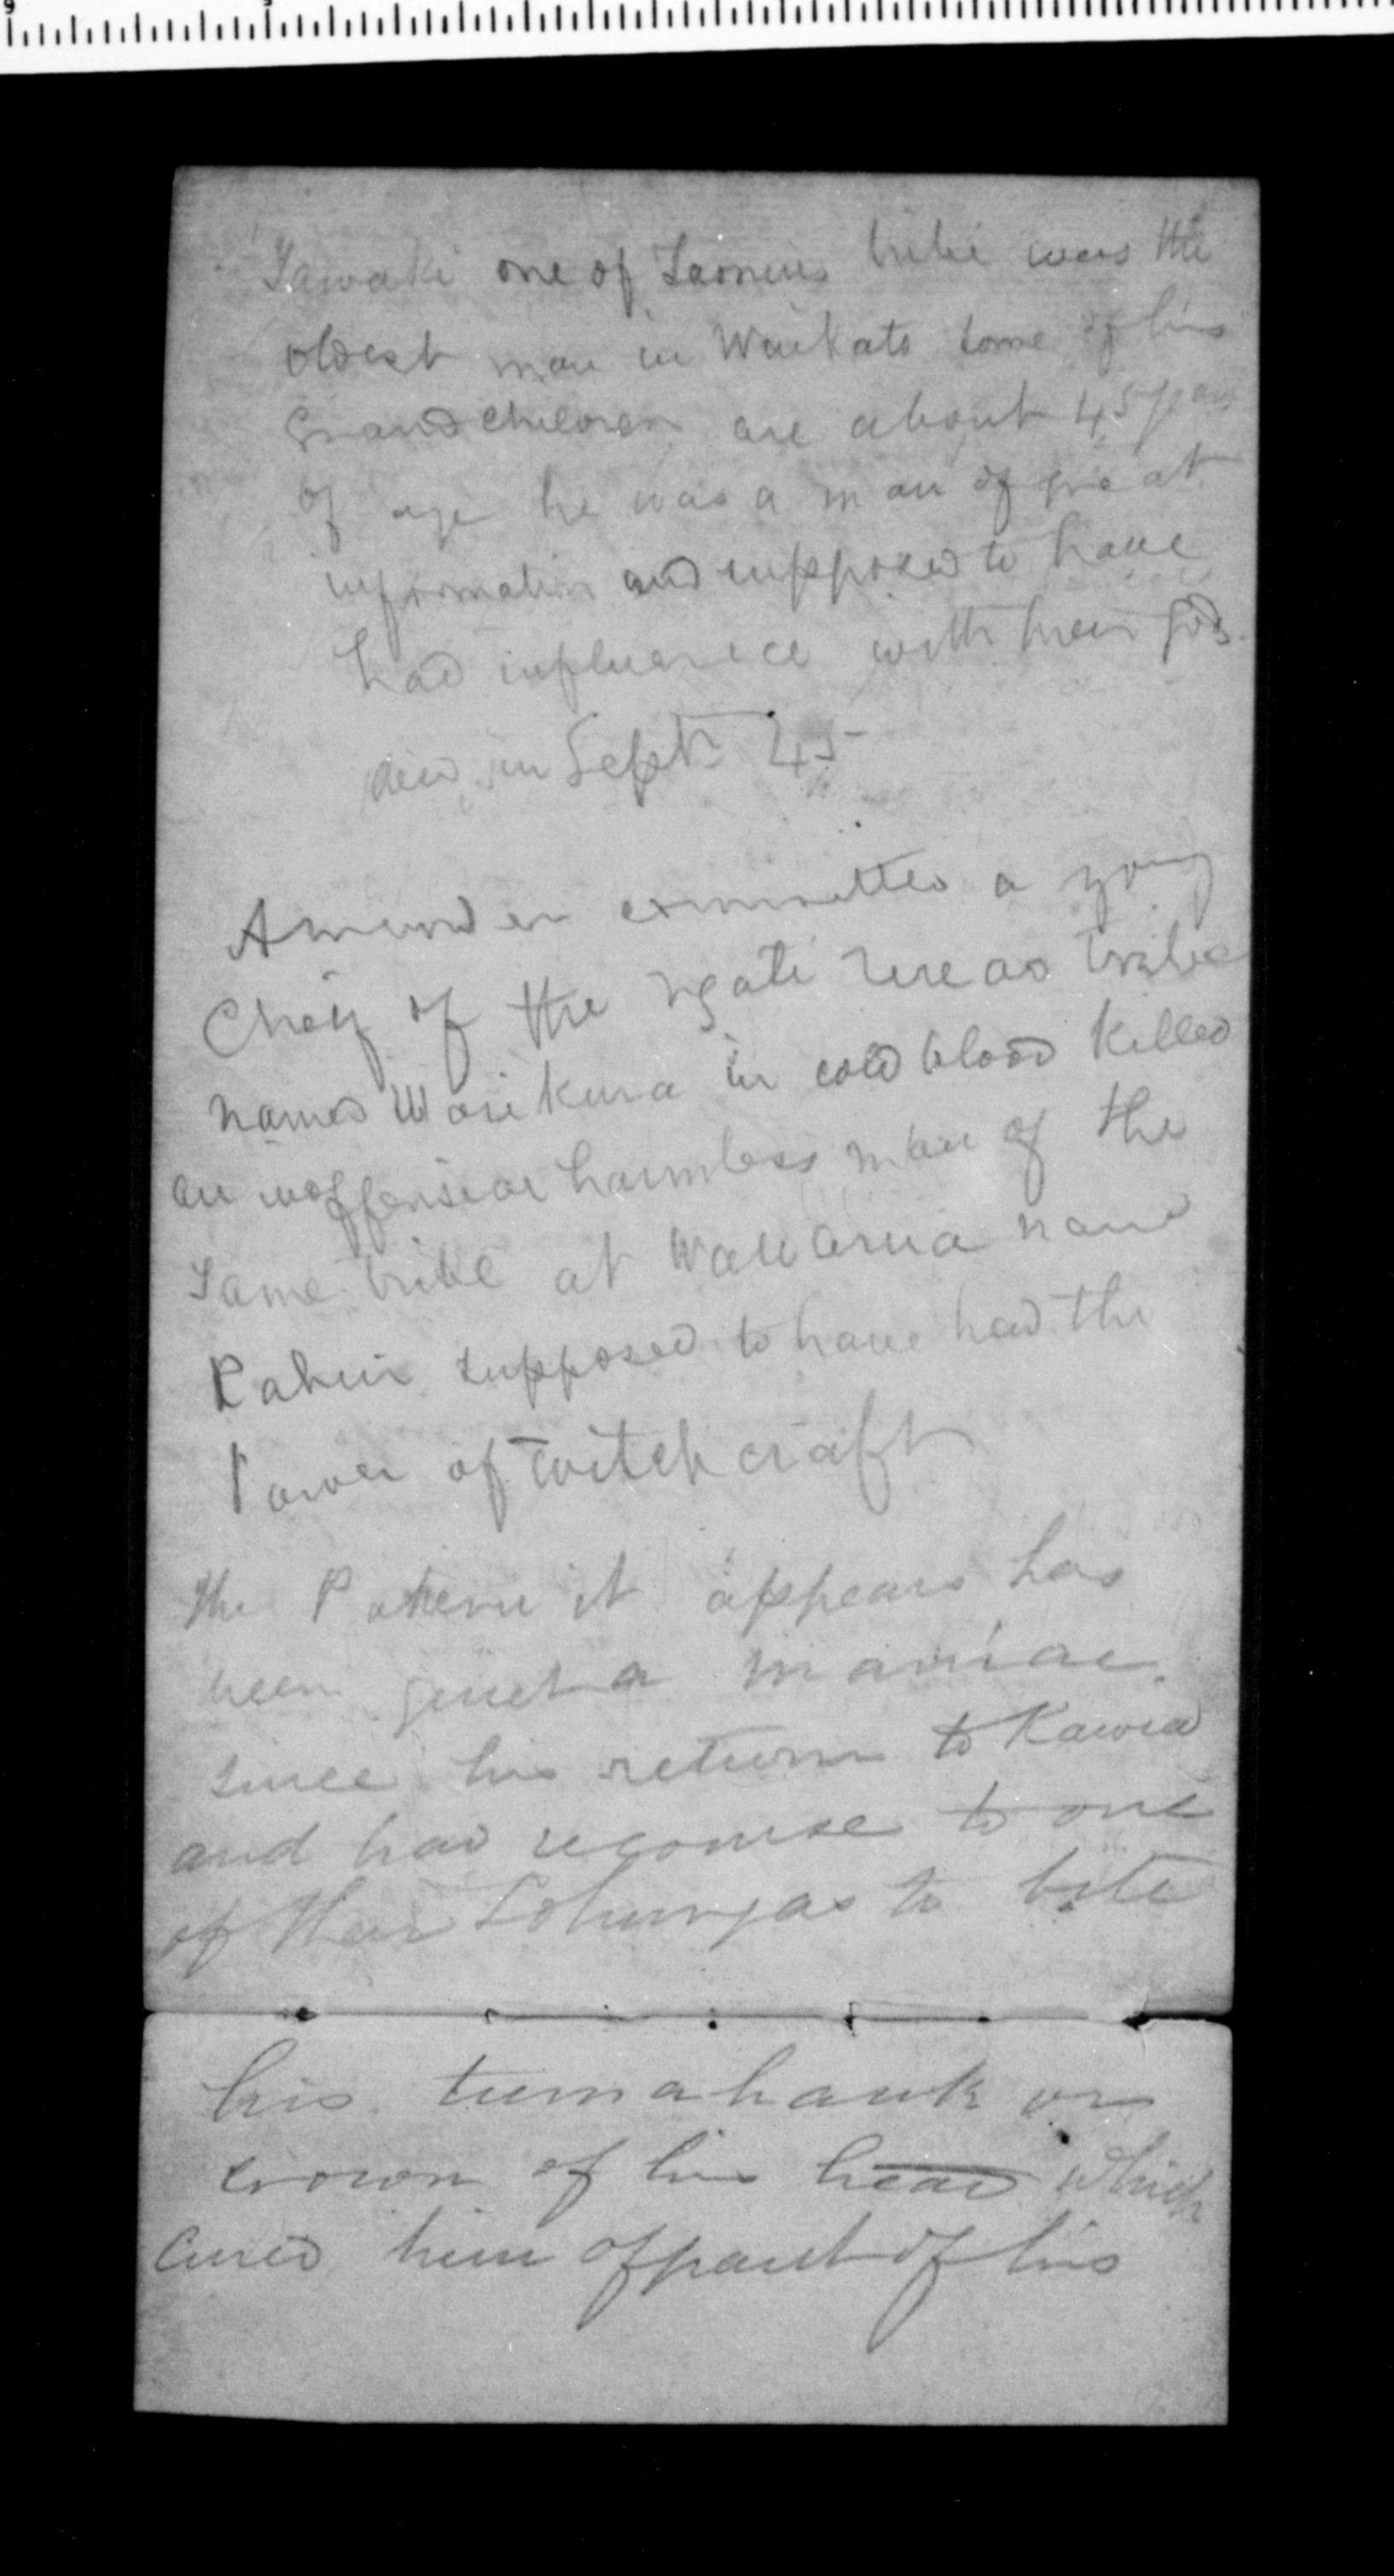 Tawaki one of Taonui's tribe was the
oldest man in Waikato some of his
Grandchildren are about 45 years
of age he was a man of great
information and supposed to have
had influence with their gods.
died in Sept 45
A murder committed a young
Chief of the ngati tribe
named Warikura in cold blood killed
an inoffensive harmless man of the
same tribe at name
supposed to have had the
Power of witchcraft
the it appears has
been quiet a maniac
since his return to Kawia
and had recourse to one
of their Tohungas to bite
his tumahauk or
crown of his head which
cured him of part of his